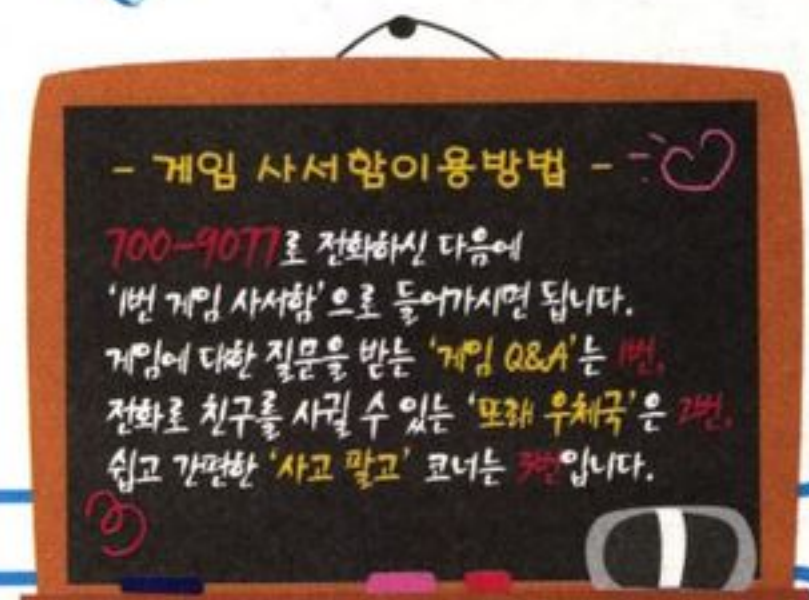 - 게임 사서함이용방법 -
700-9077로 전화하신 다음에
'1번 게임 사서함'으로 들어가시면 됩니다.
게임에 대한 질문을 받는 '게임 Q&A'는 1번,
전화로 친구를 사귈 수 있는 '또래 우체국'은 2번,
쉽고 간편한 '사고 팔고' 코너는 3번입니다.